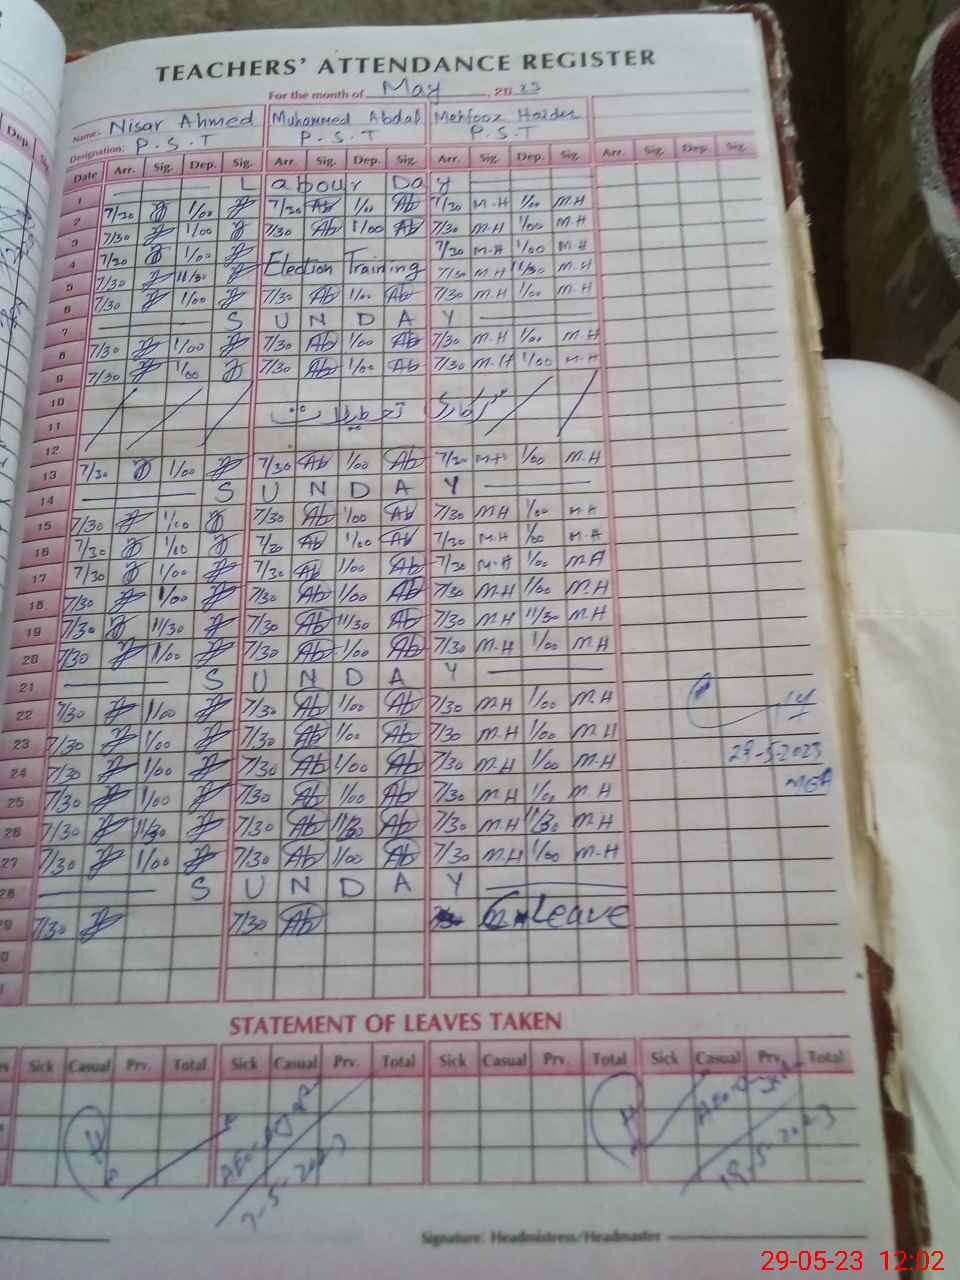 TEACHERS' ATTENDANCE REGISTER
For the month of May, 2023
Name: Nisar Ahmed Muhammed Abdal Mehfooz Haider
Designation: P.S.T P.S.T P.S.T
Date Arr. Sig. Dep. Sig. Arr. Sig. Dep. Sig. Arr. Sig. Dep. Sig. Arr. Sig. Dep. Sig.
1 Labour Day
2 7/30 1/00 7/30 Ab 1/00 Ab 7/30 M.H 1/00 M.H
3 7/30 1/00 7/30 Ab 1/00 Ab 7/30 M.H 1/00 M.H
4 7/30 1/00 Election Training 7/30 M.H 1/00 M.H
5 7/30 11/30 7/30 M.H 11/30 M.H
6 7/30 1/00 7/30 Ab 1/00 Ab 7/30 M.H 1/00 M.H
7 SUNDAY
8 7/30 1/00 7/30 Ab 1/00 Ab 7/30 M.H 1/00 M.H
9 7/30 1/00 7/30 Ab 1/00 Ab 7/30 M.H 1/00 M.H
10
11
12
13 7/30 1/00 7/30 Ab 1/00 Ab 7/30 M.H 1/00 M.H
14 SUNDAY
15 7/30 1/00 7/30 Ab 1/00 Ab 7/30 M.H 1/00 M.H
16 7/30 1/00 7/30 Ab 1/00 Ab 7/30 M.H 1/00 M.H
17 7/30 1/00 7/30 Ab 1/00 Ab 7/30 M.H 1/00 M.H
18 7/30 1/00 7/30 Ab 1/00 Ab 7/30 M.H 1/00 M.H
19 7/30 11/30 7/30 Ab 11/30 Ab 7/30 M.H 11/30 M.H
20 7/30 1/00 7/30 Ab 1/00 Ab 7/30 M.H 1/00 M.H
21 SUNDAY
22 7/30 1/00 7/30 Ab 1/00 Ab 7/30 M.H 1/00 M.H
23 7/30 1/00 7/30 Ab 1/00 Ab 7/30 M.H 1/00 M.H
24 7/30 1/00 7/30 Ab 1/00 Ab 7/30 M.H 1/00 M.H
25 7/30 1/00 7/30 Ab 1/00 Ab 7/30 M.H 1/00 M.H
26 7/30 11/30 7/30 Ab 11/30 Ab 7/30 M.H 11/30 M.H
27 7/30 1/00 7/30 Ab 1/00 Ab 7/30 M.H 1/00 M.H
28 SUNDAY
29 7/30 7/30 Ab Leave
STATEMENT OF LEAVES TAKEN
Sick Casual Prv. Total Sick Casual Prv. Total Sick Casual Prv. Total Sick Casual Prv. Total
Signature: Headmistress/Headmaster
29-05-23 12:02